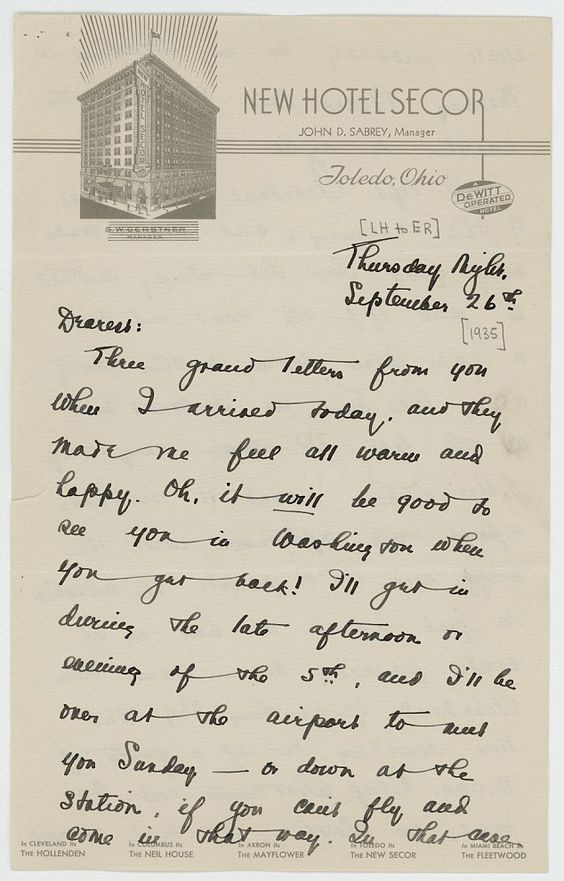 HOTEL SECOR
NEW HOTEL SECOR
JOHN D. SABREY, Manager
Toledo, Ohio
A
DEWITT
OPERATED
HOTEL
S.W. GERSTNER
MANAGER
[LH to ER]
Thursday Night,
September 26th
[1935]
Dearest:
Three grand letters from you
when I arrived today, and they
made me feel all warm and
happy. Oh, it will be good to
see you in Washington when
you get back! I'll get in
during the late afternoon or
evening of the 5th, and I'll be
over at the airport to meet
you Sunday — or down at the
station, if you can't fly and
come in that way. In that case,
In CLEVELAND Its In COLUMBUS Its In AKRON Its In TOLEDO Its In MIAMI BEACH Its
THE HOLLENDEN THE NEIL HOUSE THE MAYFLOWER THE NEW SECOR THE FLEETWOOD